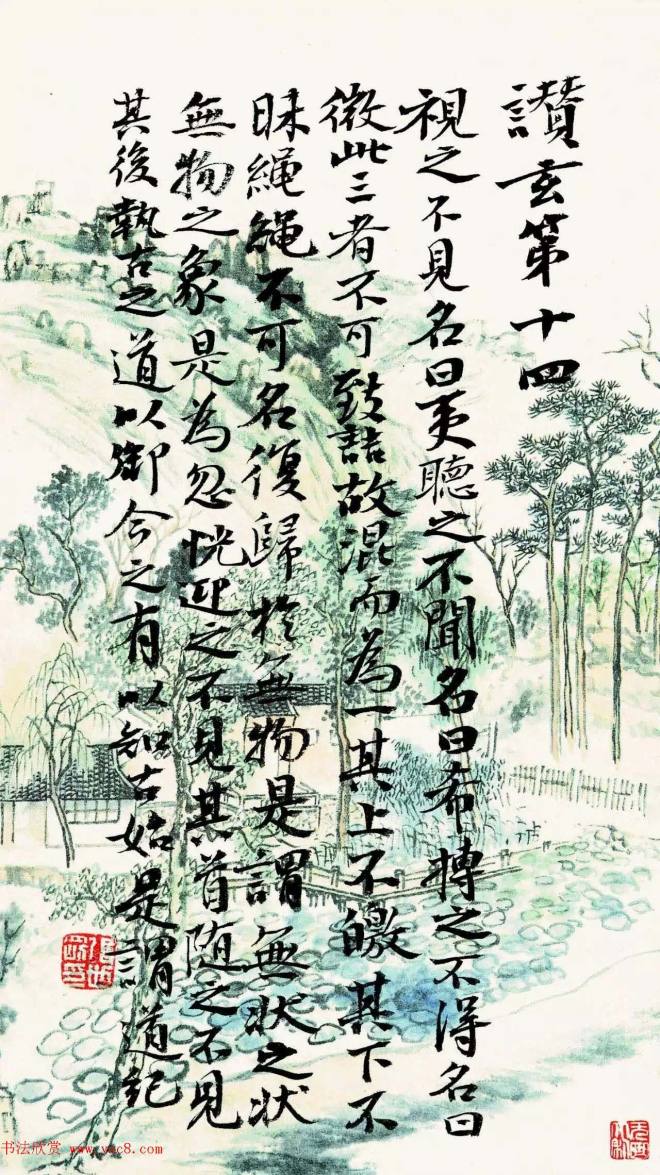 讚玄第十四
視之不見名曰夷聽之不聞名曰希摶之不得名曰
微此三者不可致詰故混而為一其上不皦其下不
昧繩繩不可名復歸於無物是謂無狀之狀
無物之象是為忽恍迎之不見其首随之不見
其後執古之道以御今之有以知古始是謂道紀
书法欣赏 www.yac8.com